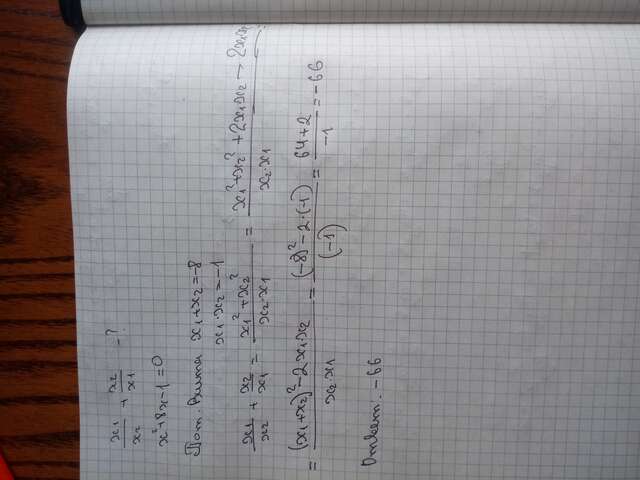 x₁/x₂ + x₂/x₁ = ?
x² + 8x - 1 = 0
По т. Виета x₁ + x₂ = -8
x₁ · x₂ = -1
x₁/x₂ + x₂/x₁ = (x₁² + x₂²)/(x₂ · x₁) = (x₁² + x₂² + 2x₁x₂ - 2x₁x₂)/(x₂ · x₁) =
= ((x₁ + x₂)² - 2x₁x₂)/(x₂ · x₁) = ((-8)² - 2 · (-1))/(-1) = (64 + 2)/(-1) = -66
Ответ: -66